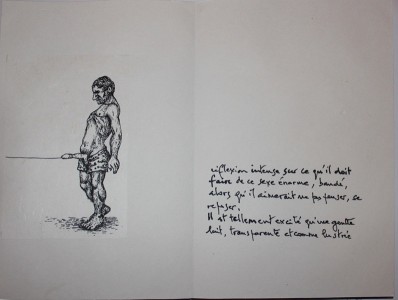 réflexion intense sur ce qu'il doit
faire de ce sexe énorme, bandé,
alors qu'il aimerait ne pas penser, se
reposer.
Il est tellement excité qu'une goutte
luit, transparente et comme lustrée